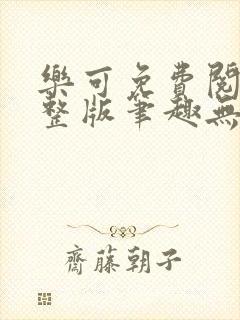 樂可免費閱
整版筆趣無
齋藤朝子